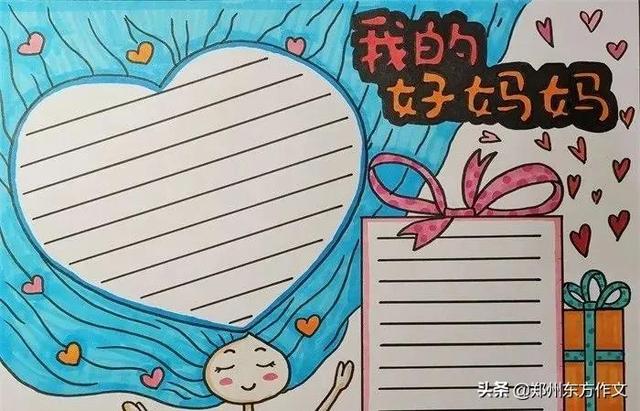 我的
好妈妈
头条 @郑州东方作文